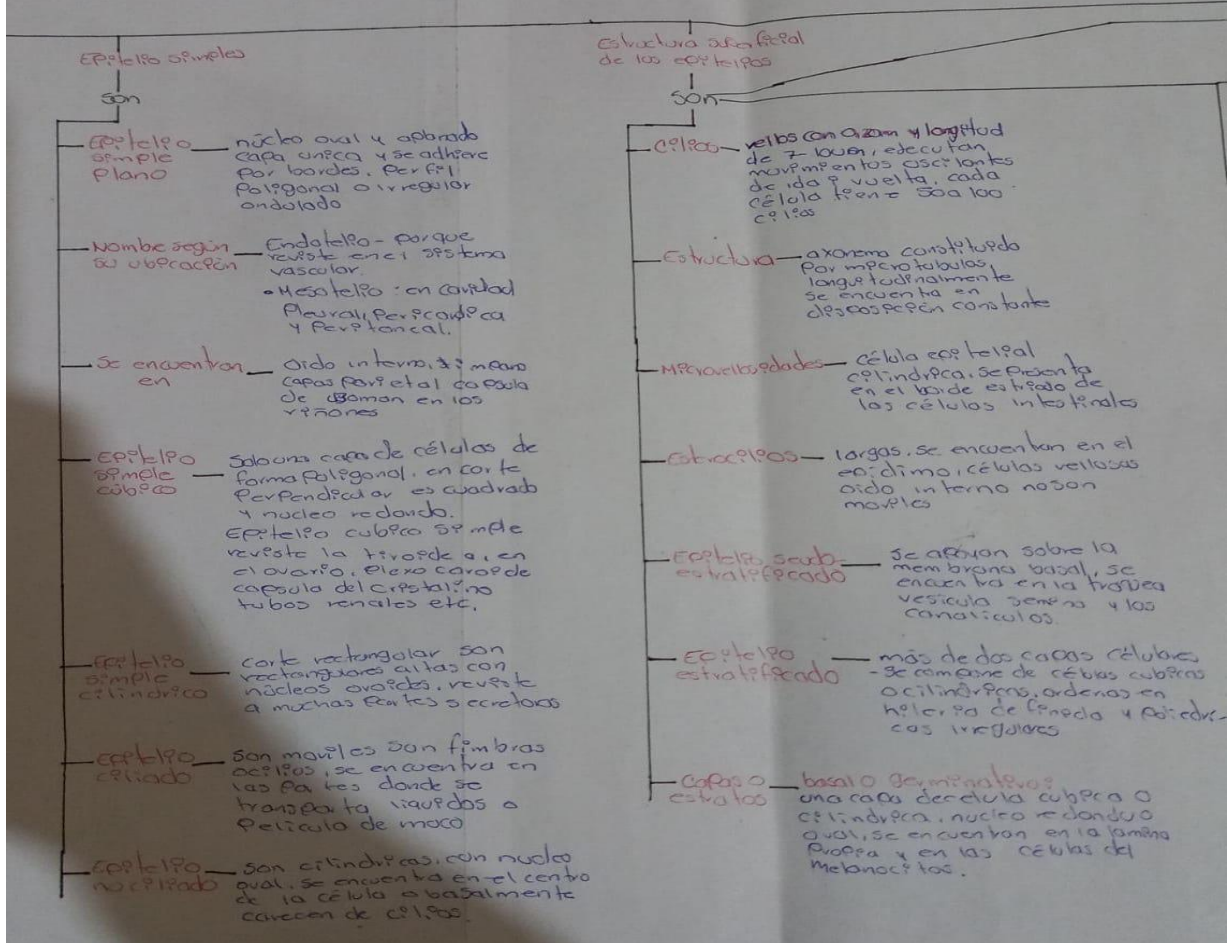 Epitelio simples
son
Epitelio simple plano — núcleo oval y aplanado
capa unica y se adhiere
por bordes, perfil
poligonal o irregular
ondulado
Nombre según su ubicación — Endotelio - porque
reviste en el sistema
vascular.
• Mesotelio: en cavidad
Pleural, Pericardica
y Peritoneal.
Se encuentran en — oido interno, timpano
capas parietal capsula
de en los
riñones
Epitelio simple cúbico — Solo una capa de células de
forma poligonal, en corte
perpendicular es cuadrado
y nucleo redondo.
Epitelio cubico simple
reviste la tiroide a, en
el ovario, plexo caroide
capsula del cristalino
tubos renales etc.
Epitelio simple cilindrico — corte rectangular son
altas con
núcleos ovoides, reviste
a muchas partes secretoras
Epitelio ciliado — son moviles son fimbras
o cilios, se encuentra en
las partes donde se
transporta liquidos o
Pelicula de moco
Epitelio no ciliado — son cilindricas, con nucleo
oval, se encuentra en el centro
de la célula o basalmente
carecen de cilios.
Estructura superficial
de los epitelios
son
Cilios — vellos con y longitud
de 7 ejecutan
movimientos oscilantes
de ida y vuelta, cada
célula tiene 50 a 100
cilios
Estructura — axonema constituido
por microtubulos,
longuitudinalmente
se encuentra en
constante
Microvellosidades — célula epitelial
cilindrica, se presenta
en el borde estriado de
las células intestinales
Estrocilios — largas, se encuentan en el
células vellosas
oido interno no son
moviles
Epitelio seudo-estratificado — se apoyan sobre la
membrana basal, se
encuentra en la traquea
vesicula y los
canaliculos.
Epitelio estratificado — más de dos capas
- Se compone de cubicas
o cilindricas, ordenas en
y poliedri-
cas irregulares
Capas o estratos — basal o germinativo:
una capa de celula cubica o
cilindrica, nucleo redondo o
oval, se encuentran en la lamina
Propia y en las células del
Melanocitos.